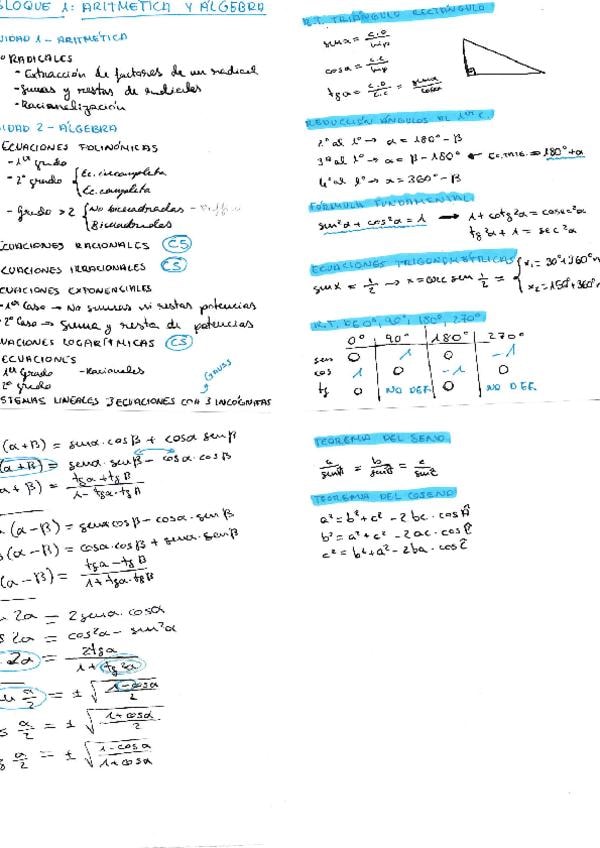 BLOQUE 1: ARITMETICA Y ALGEBRA
UNIDAD 1 - ARITMÉTICA
RADICALES
- Extracción de factores de un radical
- Sumas y restas de radicales
- Racionalización
UNIDAD 2 - ALGEBRA
ECUACIONES POLINÓMICAS
- 1er grado
- 2º grado { Ec. incompleta
Ec. completa
- Grado > 2 { No bicuadradas -
Bicuadradas
ECUACIONES RACIONALES CS
ECUACIONES IRRACIONALES CS
ECUACIONES EXPONENCIALES
- 1er Caso → No sumas ni restas potencias
2º Caso → Suma y resta de potencias
ECUACIONES LOGARÍTMICAS CS
ECUACIONES
1er Grado - Racionales
2º grado
Gauss
SISTEMAS LINEALES 3 ECUACIONES CON 3 INCÓGNITAS
(α+β) = senα·cosβ + cosα senβ
(α+β) = senα·senβ - cosα·cosβ
(α+β) = tgα+tgβ / 1-tgα·tgβ
(α-β) = senα cosβ - cosα·senβ
(α-β) = cosα·cosβ + senα·senβ
(α-β) = tgα-tgβ / 1+tgα·tgβ
2α = 2senα·cosα
2α = cos²α - sen²α
2α = 2tgα / 1+tg²α
α/2 = ± √(1-cosα / 2)
α/2 = ± √(1+cosα / 2)
α/2 = ± √(1-cosα / 1+cosα)
R.T. TRIÁNGULO RECTÁNGULO
senα = c.o / hip
cosα = c.c / hip
tgα = c.o / c.c = senα / cosα
REDUCCIÓN ÁNGULOS AL 1er C.
2º al 1º → α = 180º - β
3º al 1º → α = β - 180º ← 180º+α
4º al 1º → α = 360º - β
FÓRMULA FUNDAMENTAL
sen²α + cos²α = 1 → 1 + cotg²α = cosec²α
tg²α + 1 = sec²α
ECUACIONES TRIGONOMÉTRICAS
senx = 1/2 → x = arc sen 1/2 = { x₁ = 30º+360º
x₂ = 150º+360º
R.T. 0º, 90º, 180º, 270º
0º 90º 180º 270º
sen 0 1 0 -1
cos 1 0 -1 0
tg 0 NO DEF. 0 NO DEF.
TEOREMA DEL SENO
a/senÂ = b/senB̂ = c/senĈ
TEOREMA DEL COSENO
a² = b² + c² - 2bc·cosÂ
b² = a² + c² - 2ac·cosB̂
c² = b² + a² - 2ba·cosĈ